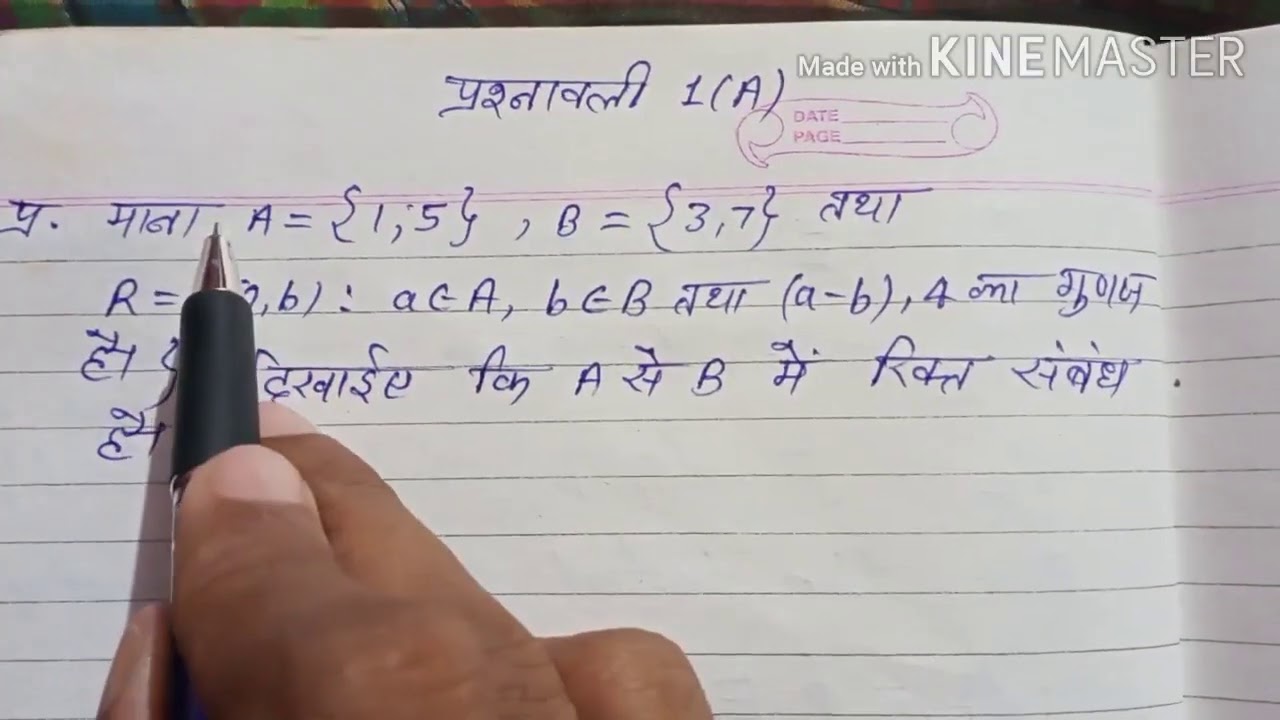 Made with KINEMASTER
प्रश्नावली 1(A)
DATE
PAGE
प्र. माना A = {1, 5} , B = {3, 7} तथा
R = , b) : a∈A, b∈B तथा (a-b), 4 का गुणज
है। } दिखाईए कि A से B में रिक्त संबंध
है